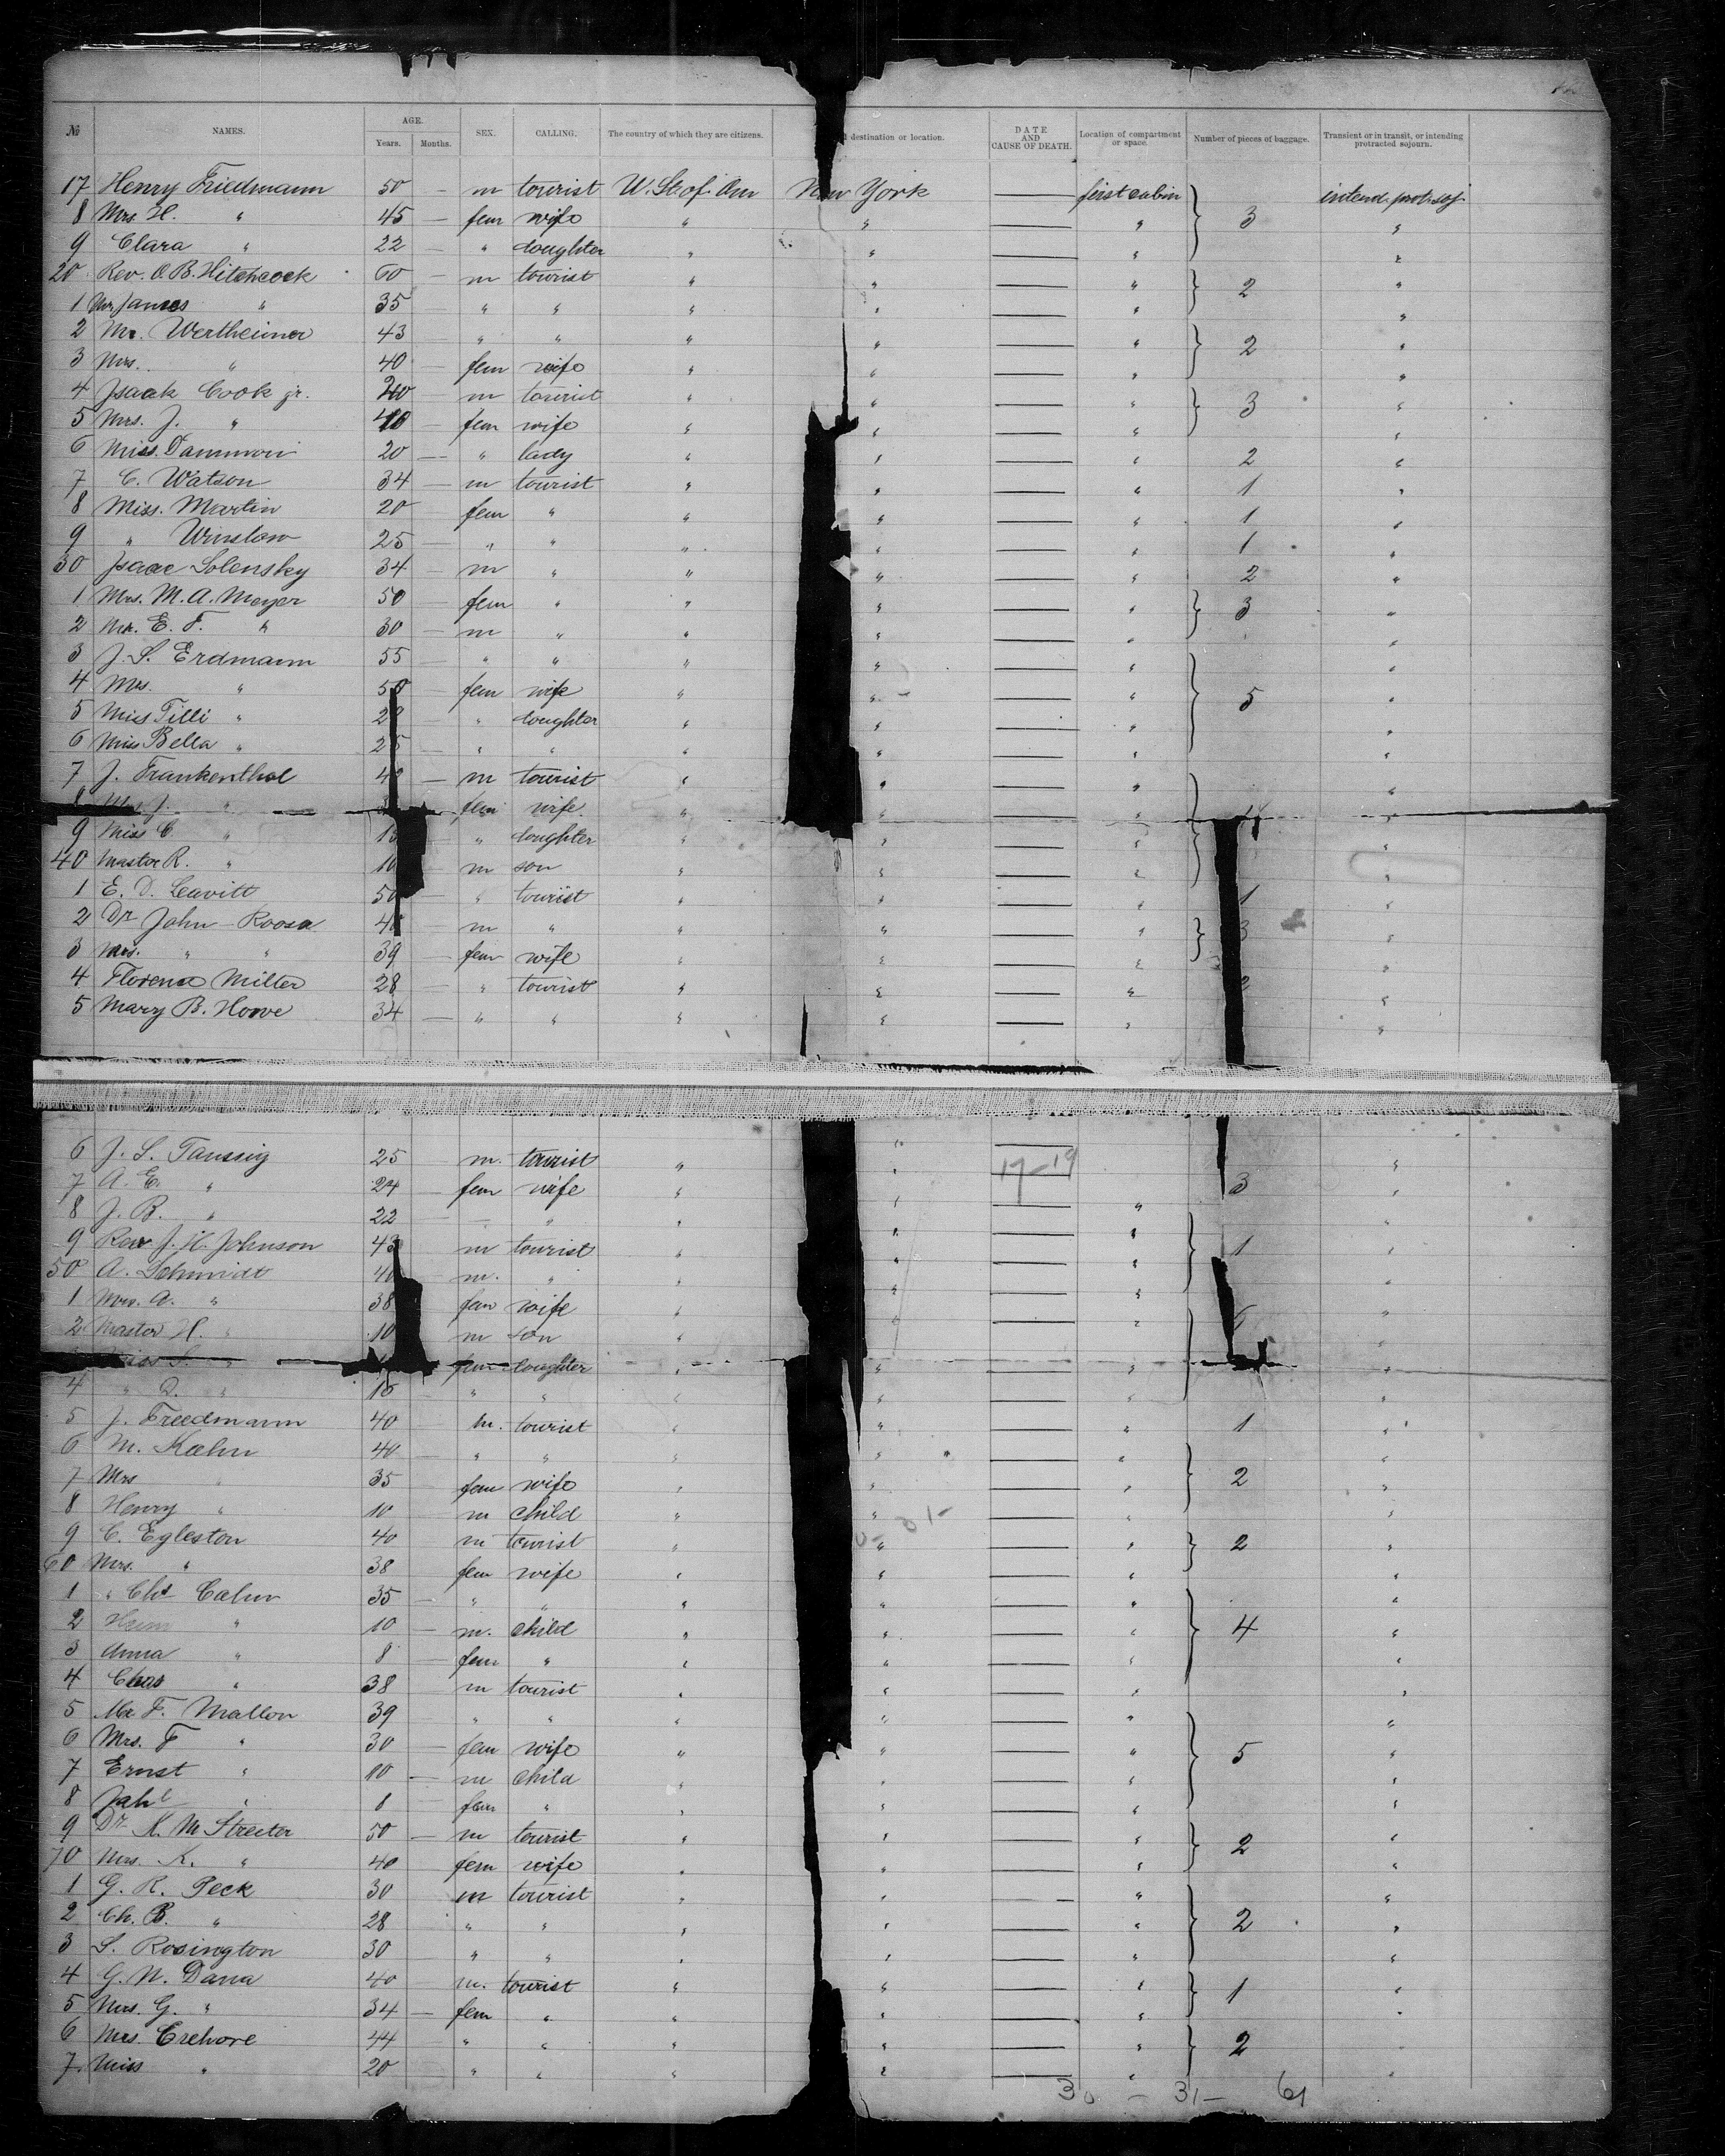 № NAMES. AGE. Years. Months. SEX. CALLING. The country of which they are citizens. destination or location. DATE AND CAUSE OF DEATH. Location of compartment or space. Number of pieces of baggage. Transient or in transit, or intending protracted sojourn.
17 Henry Friedmann 50 — m tourist U. St. of. Am New York — first cabin intend. prot. soj.
8 Mrs. H. " 45 — fem wife " " — " 3 "
9 Clara " 22 — " doughter " " — " "
20 Rev. O. B. Hitchcock 60 — m tourist " " — " 2 "
1 Mr James " 35 — " " " " — " "
2 Mr. Wertheimer 43 — " " " " — " 2 "
3 Mrs. " 40 — fem wife " " — " "
4 Isaak Cook jr. — m tourist " " — " 3 "
5 Mrs. J. " 40 — fem wife " " — " "
6 Miss. 20 — " lady " " — " 2 "
7 C. Watson 34 — m tourist " " — " 1 "
8 Miss. Martin 20 — fem " " " — " 1 "
9 " Winslow 25 — " " " " — " 1 "
30 Isaac Solensky 34 — m " " " — " 2 "
1 Mrs. M. A. Meyer 50 — fem " " " — " 3 "
2 Mr. E. F. " 30 — m " " " — " "
3 J. S. Erdmann 55 — " " " " — " "
4 Mrs. " 50 — fem wife " " — " 5 "
5 Miss Tilli " — " doughter " " — " "
6 Miss Bella " 25 — " " " " — " "
7 J. Frankenthal — m tourist " " — " "
8 Mrs. J. " fem wife " " — " "
9 Miss C. " " doughter " " — " "
40 Master R. " 10 m son " " — " "
1 E. D. Leavitt 50 " tourist " " — " 1 "
2 Dr John Roosa m " " " — " 3 "
3 Mrs. " " 39 — fem wife " " — " "
4 Florence Miller 28 — " tourist " " — " 2 "
5 Mary B. Howe 34 — " " " " — " "
6 J. S. Taussig 25 — m. tourist " " — "
7 A. E. " 24 — fem wife " " — 17–19 3 "
8 J. B. " 22 — — " " " — " "
9 Rev J. H. Johnson 43 m tourist " " — " 1 "
50 A. Schmidt 40 m. " " " — " "
1 Mrs. A. " 38 fem wife " " — " "
2 Master H. " 10 m son " " — " 6 "
Miss S. " fem doughter " " — " "
4 " " 15 " " " " — " "
5 J. Freedmann 40 — m. tourist " " — " 1 "
6 M. Kahn 40 — " " " " — " "
7 Mrs " 35 fem wife " " — " 2 "
8 Henry " 10 m child " " — " "
9 C. Egleston 40 m tourist " " — " 2 "
60 Mrs. " 38 fem wife " " — " "
1 " Chs Cahn 35 — " " " " — " "
2 " 10 — m. child " " — " 4 "
3 Anna " 8 — fem " " " — " "
4 Chas " 38 m tourist " " — " "
5 Mr F. Mallon 39 " " " " — " "
6 Mrs. F " 30 — fem wife " " — " 5 "
7 Ernst " 10 — m child " " — " "
8 " 8 fem " " " — " "
9 Dr. K. M Streeter 50 — m tourist " " — " 2 "
70 Mrs. K. " 40 fem wife " " — " "
1 G. R. Peck 30 m tourist " " — " "
2 Ch. B. " 28 " " " " — " 2 "
3 S. Rosington 30 " " " " — " "
4 G. N. Dana 40 m. tourist " " — " 1 "
5 Mrs. G. " 34 — fem " " " — " "
6 Mrs. Crehore 44 " " " " — " 2 "
7 Miss " 20 " " " " — " "
30 – 31 – 61